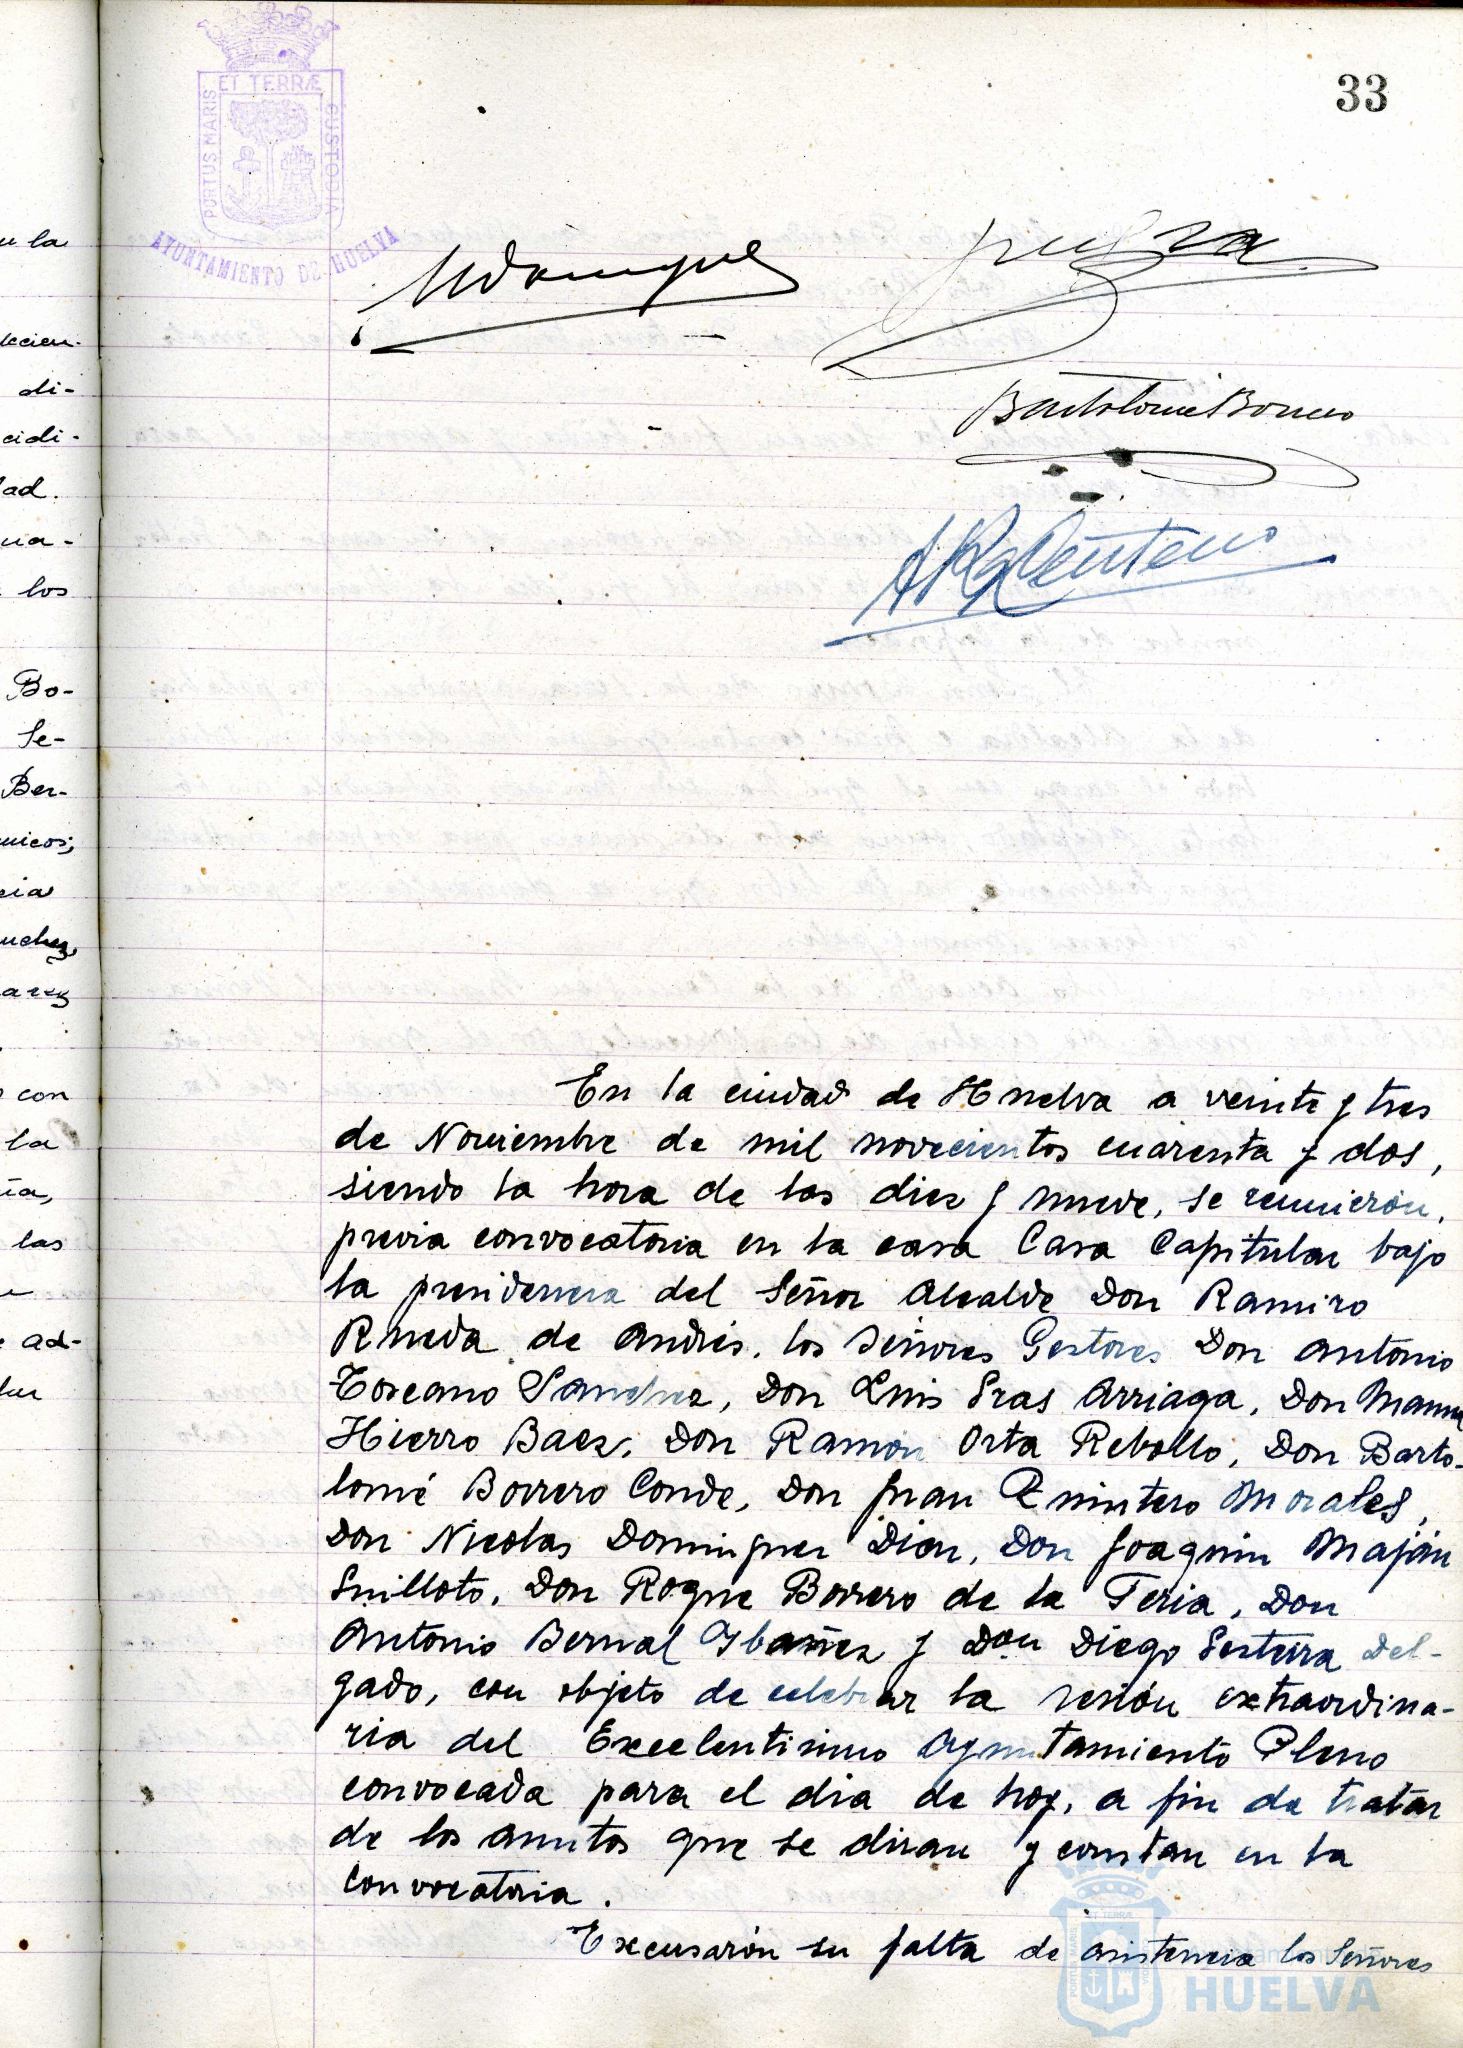 ET TERRÆ
PORTUS MARIS
CUSTODIA
AYUNTAMIENTO DE HUELVA
33
u la
di-
cidi-
ad.
los
Bo-
Se-
Ber-
con
la
las
ad-
NDominguez
Bartolomé Borrero
En la ciudad de Huelva a veinte y tres
de Noviembre de mil novecientos cuarenta y dos,
siendo la hora de las diez y nueve, se reunieron,
previa convocatoria en la casa Casa Capitular bajo
la presidencia del Señor Alcalde Don Ramiro
Rueda de Andrés, los señores Gestores Don Antonio
Toscano Sanchez, Don Luis Gras Arriaga, Don Manuel
Hierro Baez, Don Ramón Orta Rebollo, Don Barto-
lomé Borrero Conde, Don Juan Quintero Morales,
Don Nicolas Dominguez Diaz, Don Joaquin Maján
Guilloto, Don Roque Borrero de la Feria, Don
Antonio Bernal Ybañez y Don Diego Sesteira Del-
gado, con objeto de celebrar la sesión extraordina-
ria del Excelentisimo Ayuntamiento Pleno
convocada para el dia de hoy, a fin de tratar
de los asuntos que se diran y constan en la
convocatoria.
Excusarón su falta de asistencia los Señores
ET TERRÆ
PORTUS MARIS
HUELVA